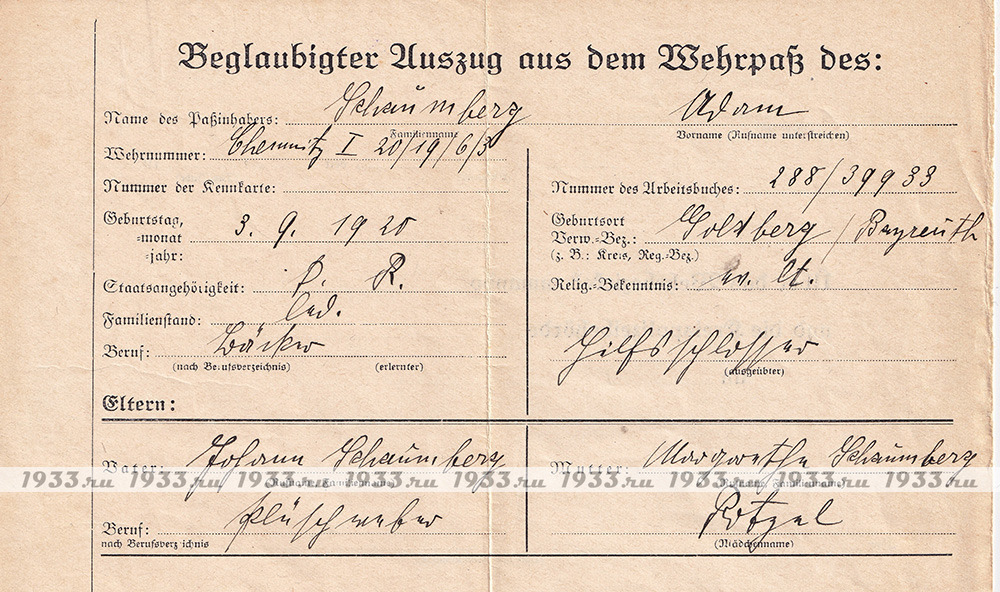 Beglaubigter Auszug aus dem Wehrpaß des:
Name des Paßinhabers: Schaumberg Adam
Familienname Vorname (Rufname unterstreichen)
Wehrnummer: Chemnitz I 20/19/6/3
Nummer der Kennkarte: Nummer des Arbeitsbuches: 288/39933
Geburtstag, Geburtsort
=monat 3. 9. 1920 Verw.-Bez.: Goldberg / Bayreuth
=jahr: (z. B.: Kreis, Reg.-Bez.)
Staatsangehörigkeit: R. Relig.-Bekenntnis: ev. lt.
Familienstand: led.
Beruf: Bäcker Hilfsschlosser
(nach Berufsverzeichnis) (erlernter) (ausgeübter)
Eltern:
Vater: Johann Schaumberg Mutter: Margarethe Schaumberg
(Rufname, Familienname) (Rufname, Familienname)
1933.ru 1933.ru 1933.ru 1933.ru 1933.ru 1933.ru 1933.ru
Beruf: Plüschweber
nach Berufsverzeichnis (Mädchenname)